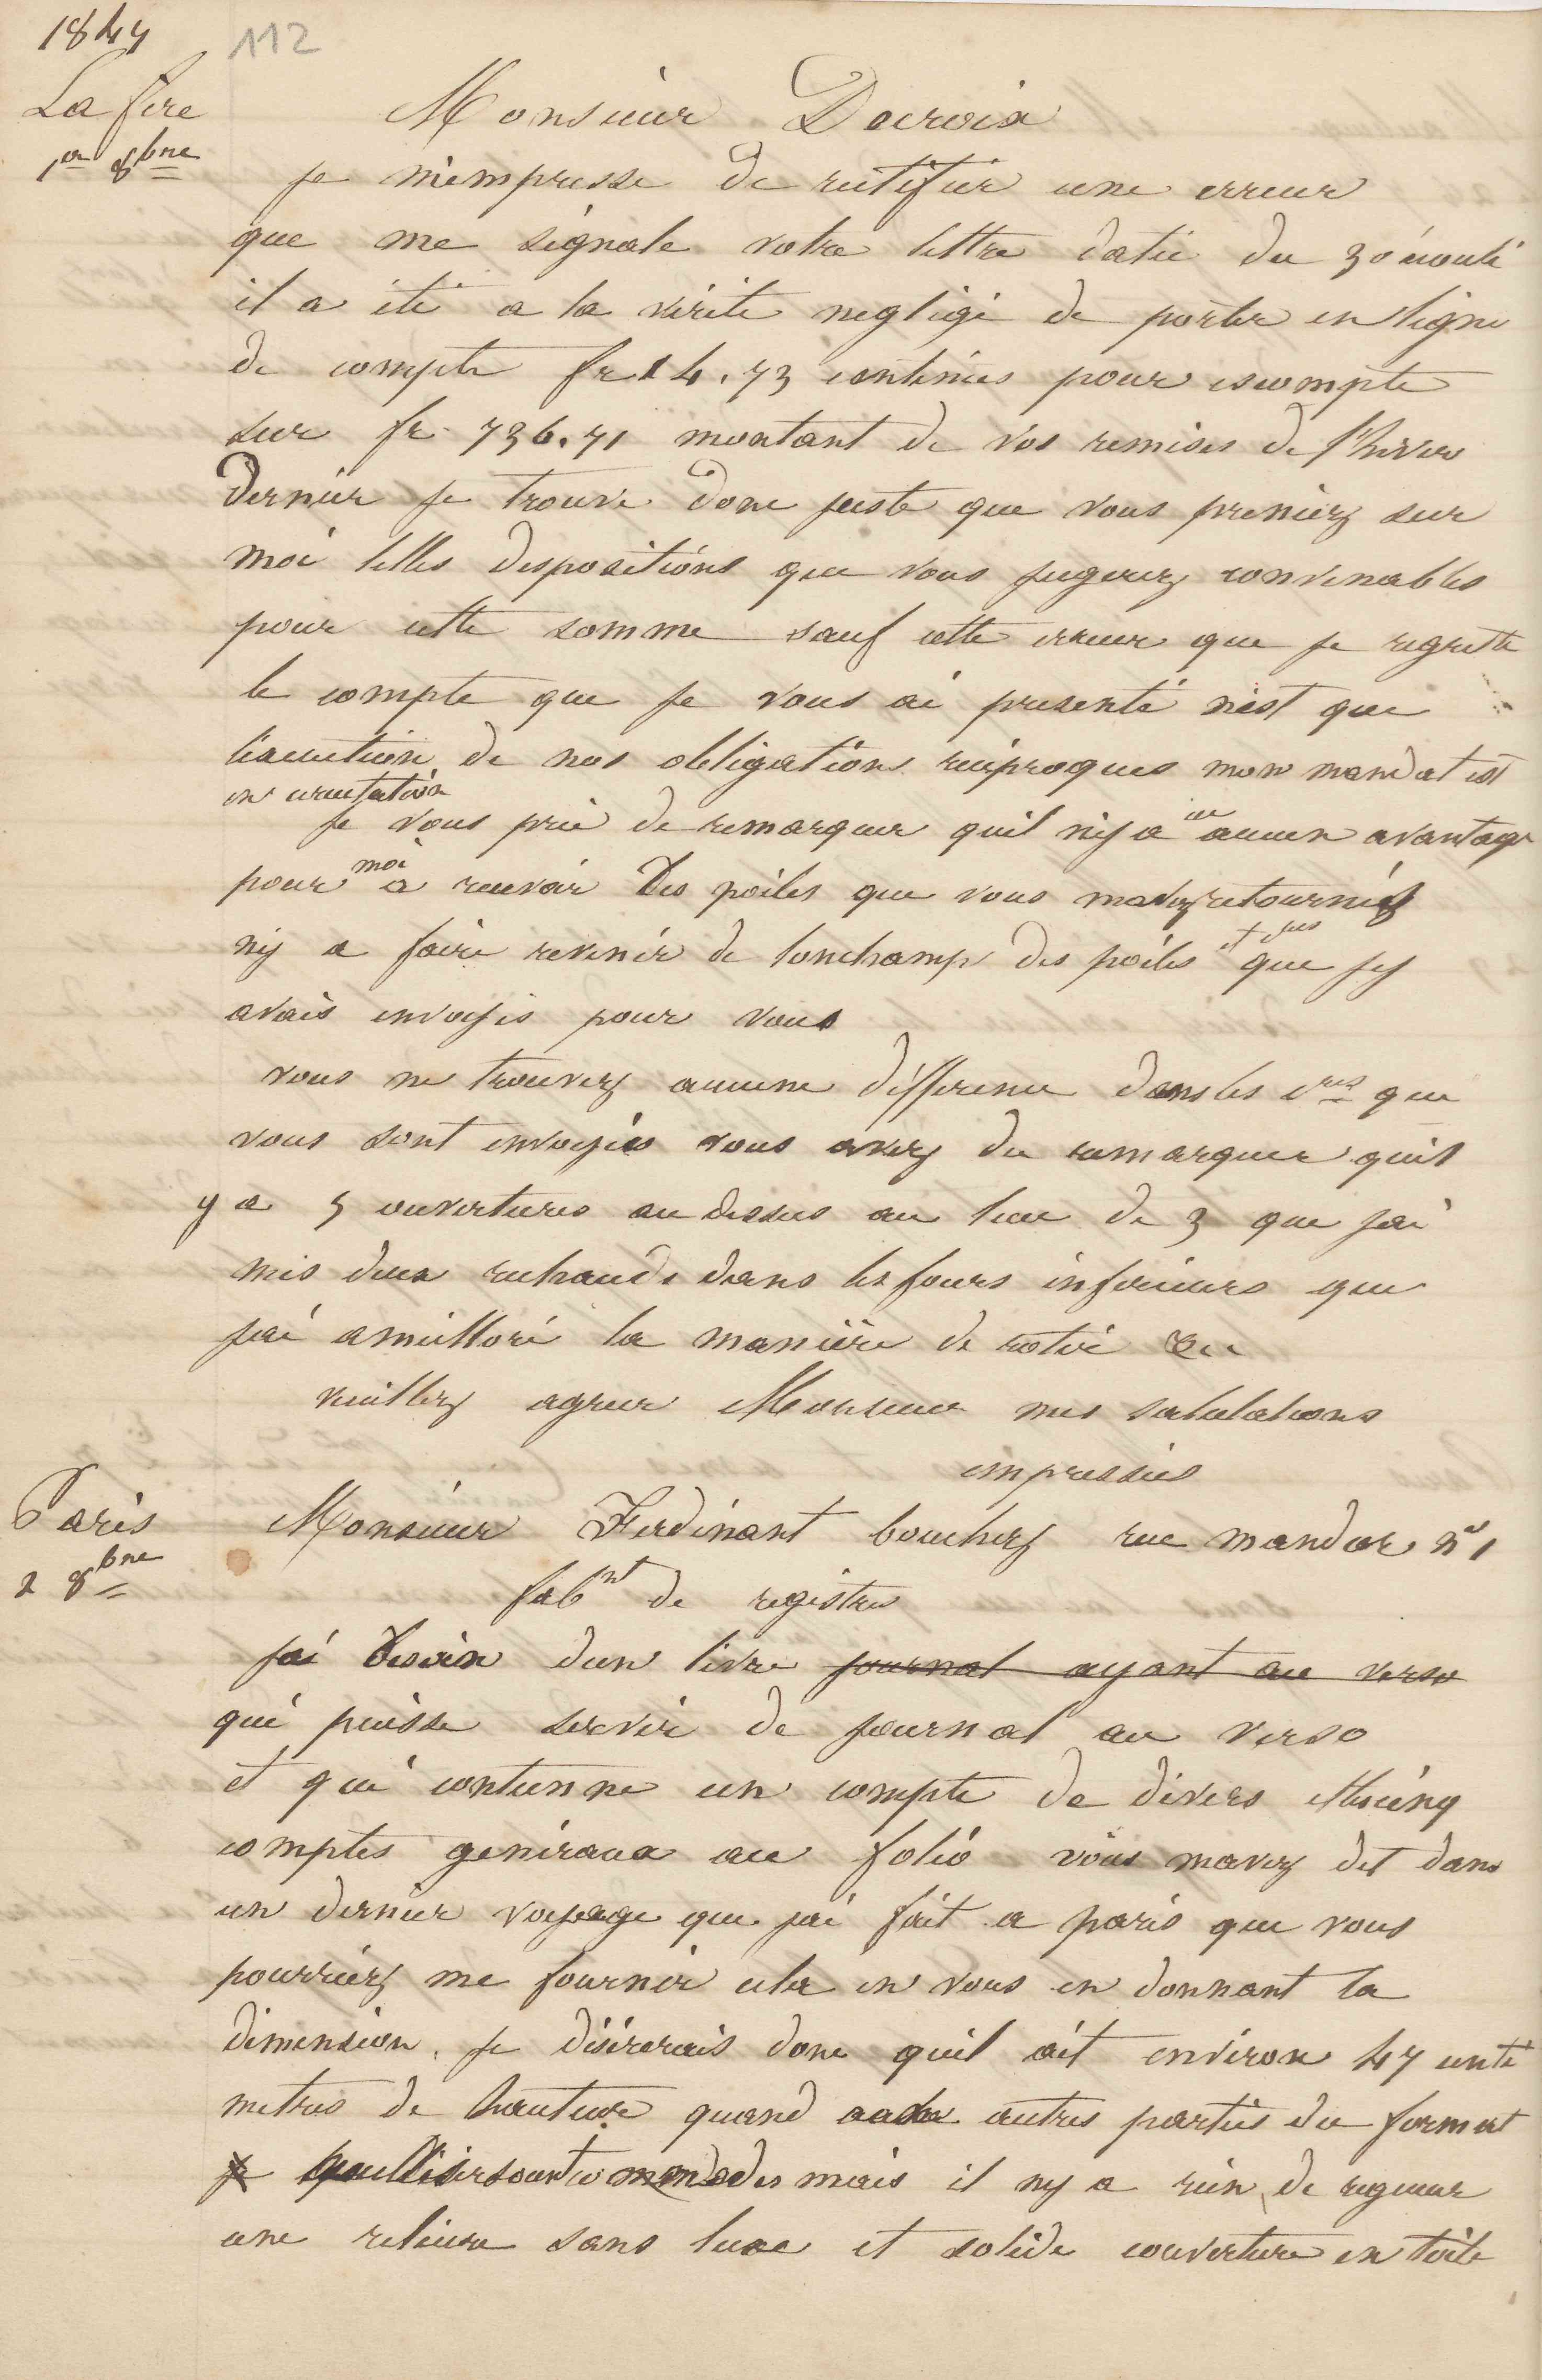 1847
112
La fere
1er 8bre
Monsieur Decroix
je m'empresse de rectifier une erreur
que me signale votre lettre datée du 30 écoulé
il a été a la vérité negligé de porter en ligne
de compte fr 14.73 centimes pour escompte
sur fr. 736.71 montant de vos remises de l'hiver
dernier je trouve donc juste que vous preniez sur
moi telles dispositions que vous jugerez convenables
pour cette somme sauf cette erreur que je regrette
le compte que je vous ai presenté n'est que
l'execution de nos obligations reciproques mon mandat est
en circulation
je vous prie de remarquer quil ny a eu aucun avantage
pour moi a recevoir des poiles que vous mavez retournés
ny a faire revenir de lonchamp des poiles que jy
avais envoyés pour vous
vous ne trouvez aucune difference dans les cres que
vous sont envoyées vous avez du remarquer quil
y a 5 ouvertures au dessus au lieu de 3 que jai
mis deux rechauds dans les fours inferieurs que
jai amelloré la manière de rotir &c
veuillez agreer Monsieur mes salutations
empressées
Paris
2 8bre
Monsieur Ferdinant bouchez rue mandar n° 1
fabnt de registres
jai besoin dun livre journal ayant au verso
qui puisse servir de journal au verso
et qui contienne un compte de divers et cinq
comptes generaux au folio vous mavez dit dans
un dernier voyage que jai fait a paris que vous
pourriez me fournir cela en vous en donnant la
dimension. je désirerais donc quil ait environ 47 centi
metres de hauteur quand aux autres parties du format
mais il ny a rien de rigueur
une reliure sans luxe et solide couverture en toile